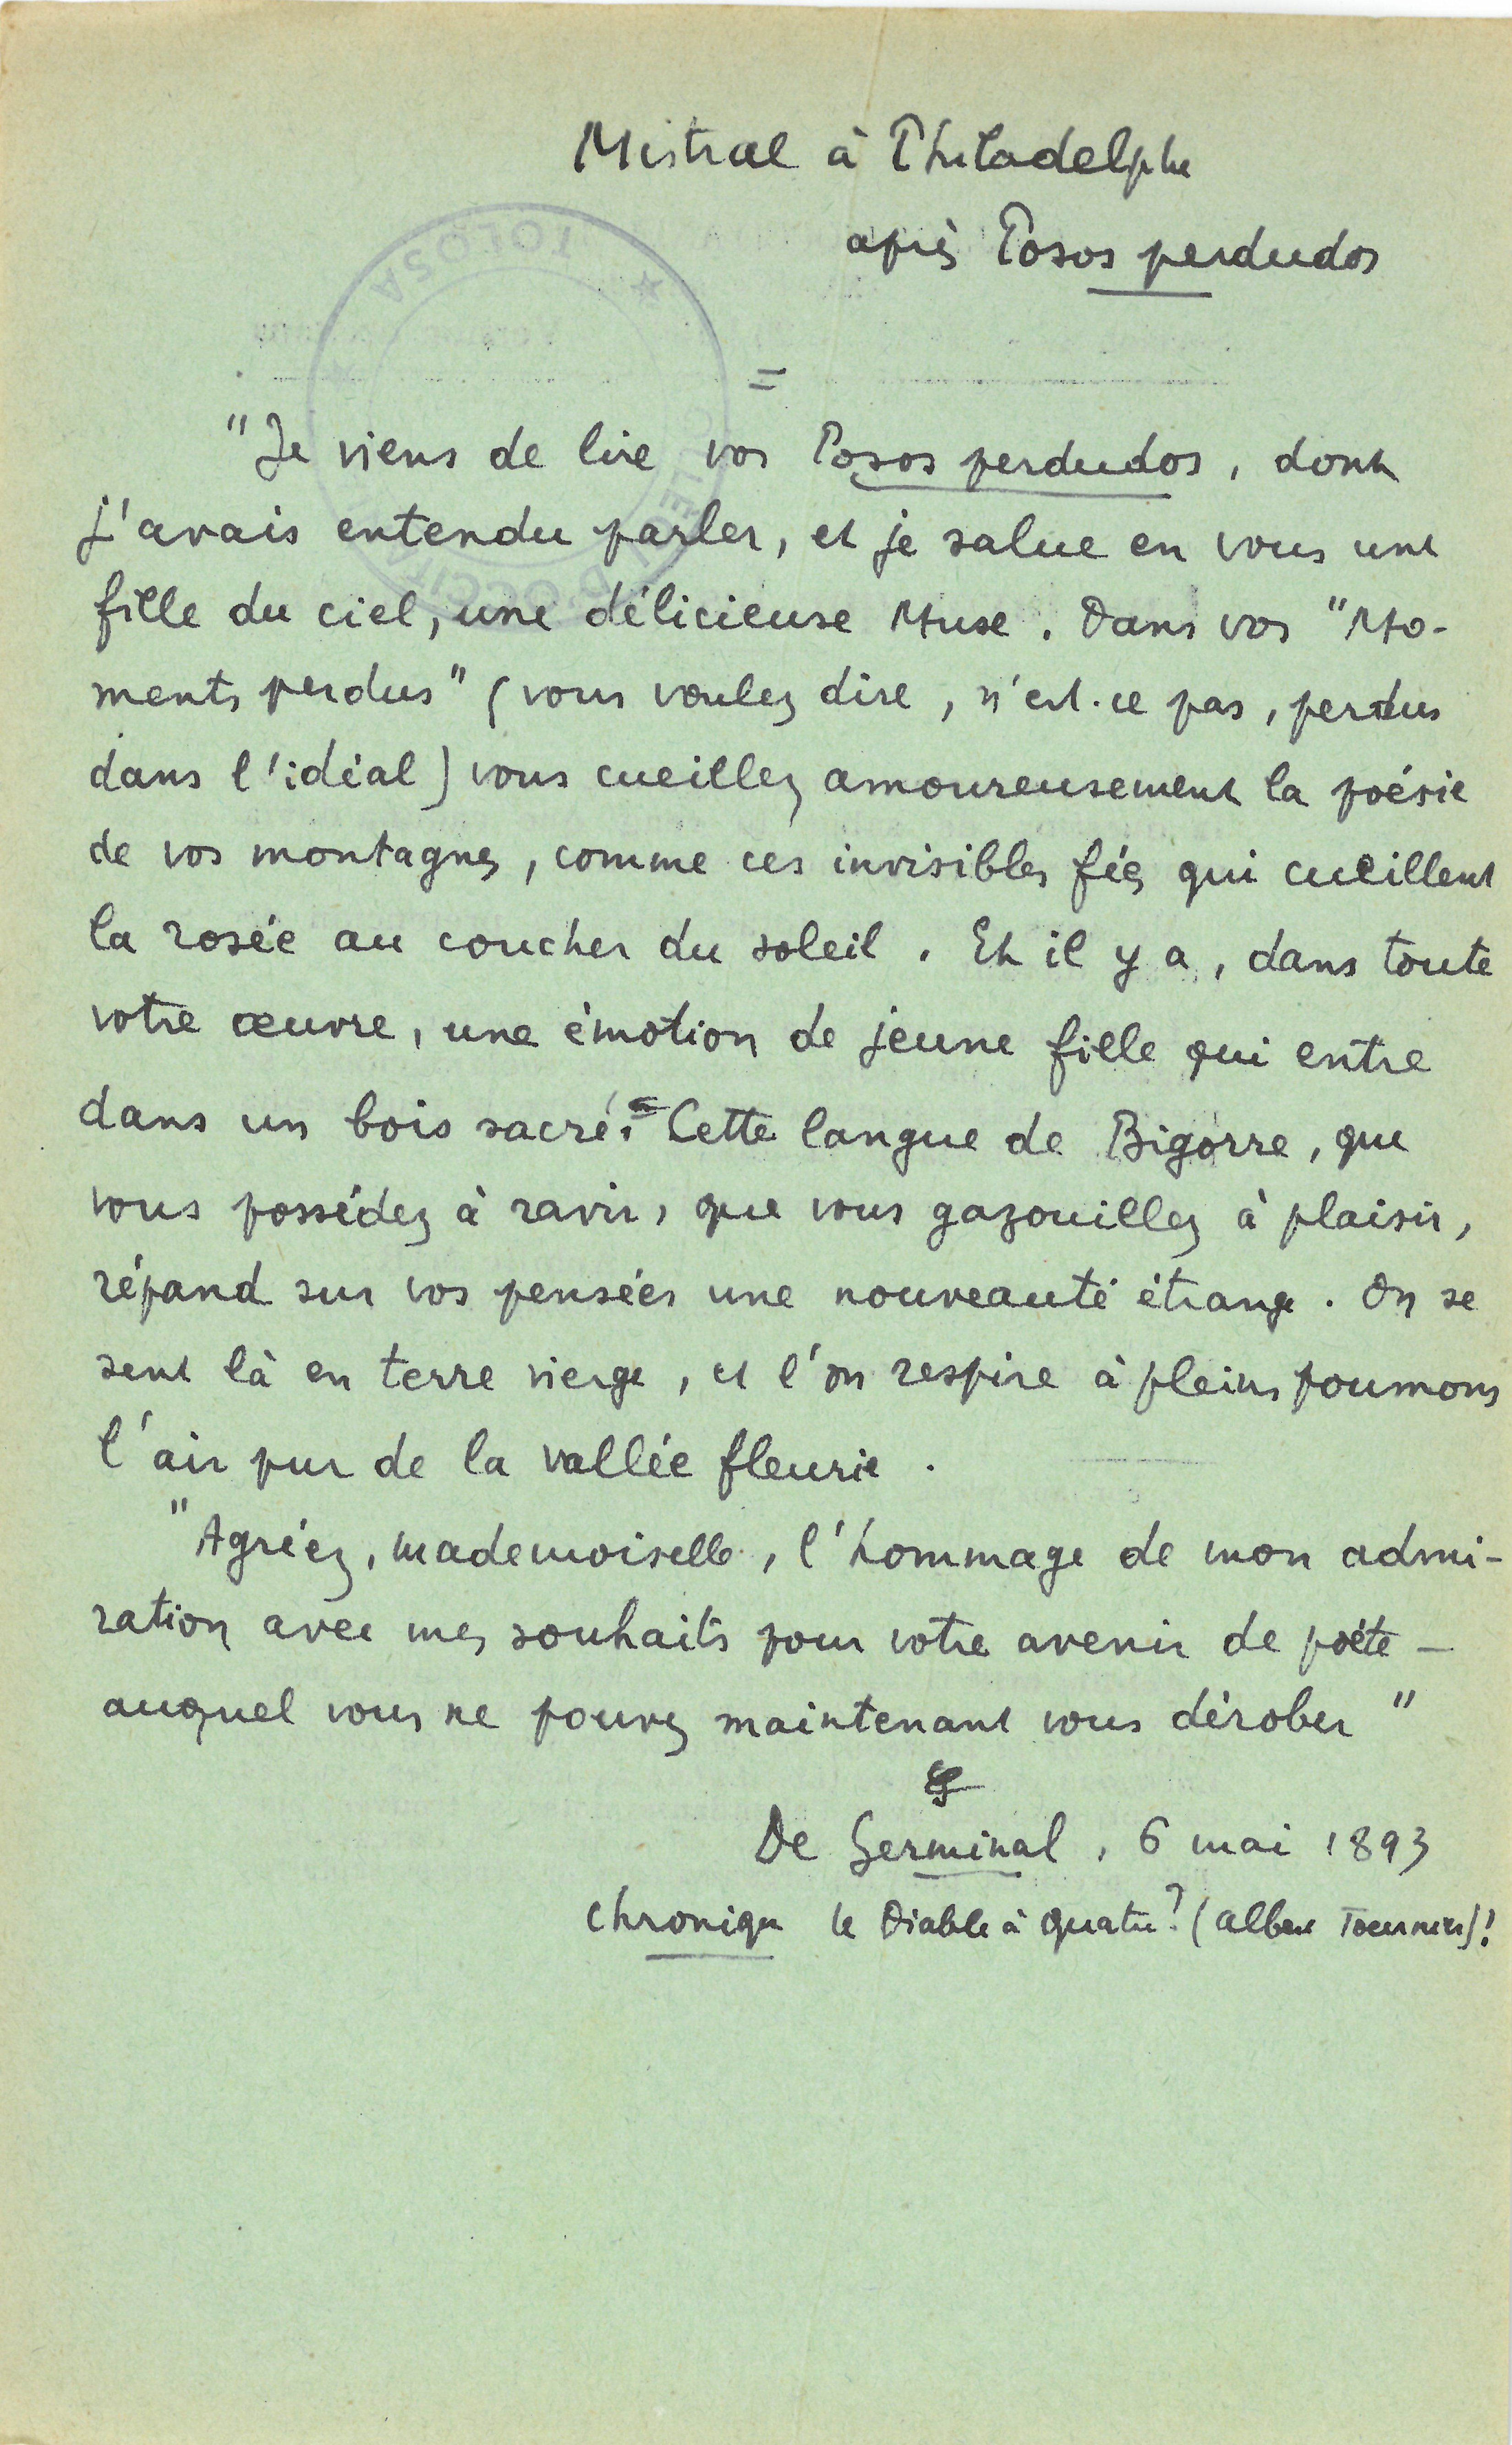 Mistral à Philadelphe
après Posos perdudos
=
"Je viens de lire vos Posos perdudos, dont
j'avais entendu parler, et je salue en vous une
fille du ciel, une délicieuse Muse. Dans vos "Mo-
ments perdus" (vous voulez dire, n'est-ce pas, perdus
dans l'idéal) vous cueillez amoureusement la poésie
de vos montagnes, comme ces invisibles fées qui cueillent
la rosée au coucher du soleil. Et il y a, dans toute
votre œuvre, une émotion de jeune fille qui entre
dans un bois sacré. Cette langue de Bigorre, que
vous possédez à ravir, que vous gazouillez à plaisir,
répand sur vos pensées une nouveauté étrange. On se
sent là en terre vierge, et l'on respire à pleins poumons
l'air pur de la vallée fleurie.
"Agréez, mademoiselle, l'hommage de mon admi-
ration avec mes souhaits pour votre avenir de poète -
auquel vous ne pouvez maintenant vous dérober"
De Germinal, 6 mai 1893
Chronique le Diable à quatre? (Albert Tournier)!
TOLOSA